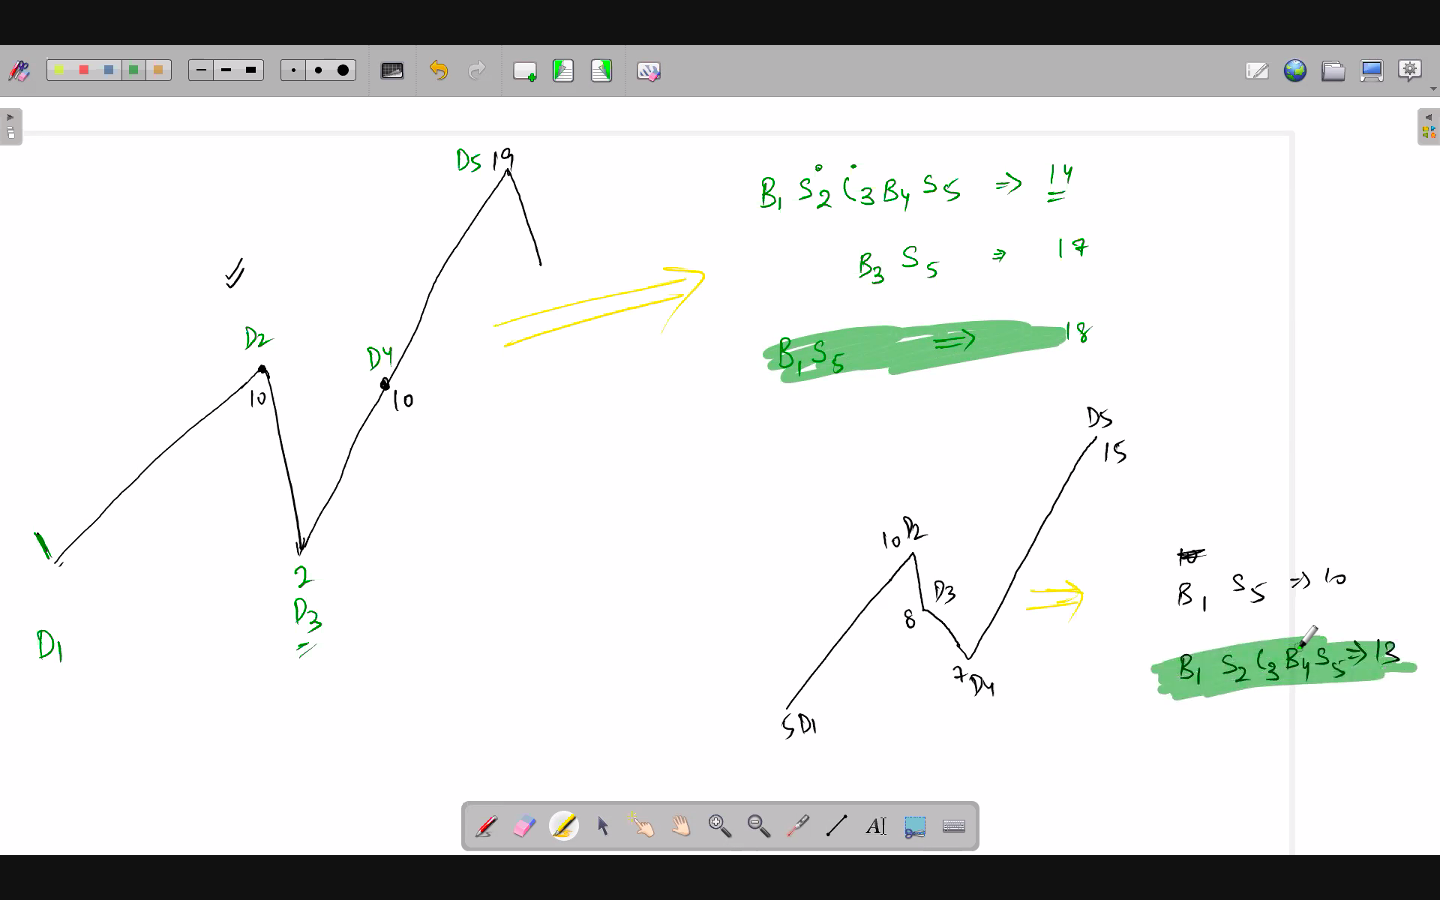 D5 19
D2
10
D4
10
1
2
D3
D1
B1 S2 C3 B4 S5 => 14
B3 S5 => 17
B1 S5 => 18
D5
15
10 D2
D3
8
7 D4
5 D1
10
B1 S5 => 10
B1 S2 C3 B4 S5 => 13
AI